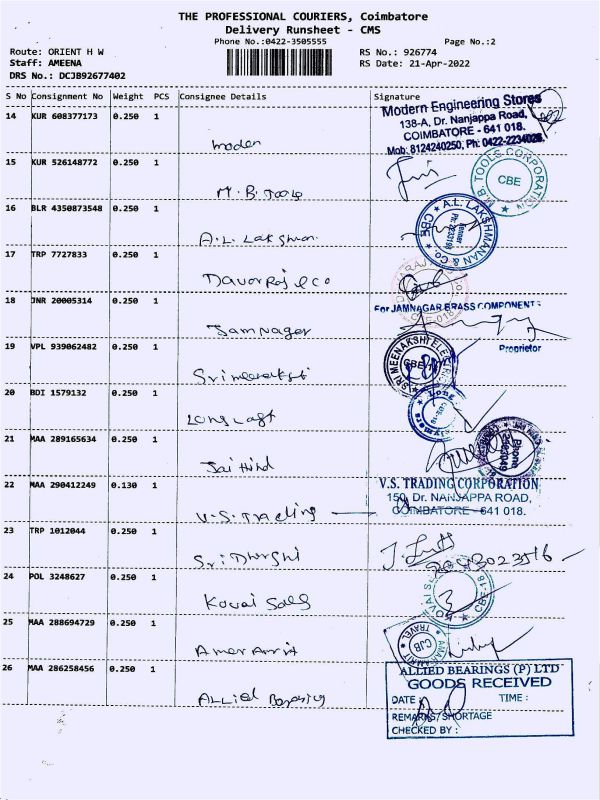 THE PROFESSIONAL COURIERS, Coimbatore
Delivery Runsheet - CMS
Phone No.:0422-3505555
Page No.:2
Route: ORIENT H W
RS No.: 926774
Staff: AMEENA
RS Date: 21-Apr-2022
DRS No.: DCJB92677402
S No Consignment No Weight PCS Consignee Details Signature
14 KUR 608377173 0.250 1
Moden
Modern Engineering Stores
138-A, Dr. Nanjappa Road,
COIMBATORE - 641 018.
Mob: 8124240250, Ph: 0422-2234026
15 KUR 526148772 0.250 1
M. B. Tools
M.B. TOOLS CORPORATION
CBE
16 BLR 4350873548 0.250 1
A. L. Lakshman
A.L. LAKSHMANAN & CO. CBE
17 TRP 7727833 0.250 1
CBE-018
18 JNR 20005314 0.250 1
Jamnager
For JAMNAGAR BRASS COMPONENTS
Proprietor
19 VPL 939062482 0.250 1
Srimeenakshi
SRI MEENAKSHI
CBE
20 BDI 1579132 0.250 1
Long
21 MAA 289165634 0.250 1
Jai Hind
Phone
22 MAA 290412249 0.130 1
V. S. Trading
V.S. TRADING CORPORATION
150, Dr. NANJAPPA ROAD,
COIMBATORE - 641 018.
23 TRP 1012044 0.250 1
24 POL 3248627 0.250 1
Kovai Sales
CBE-18
25 MAA 288694729 0.250 1
Amar Amrit
TRAVEL
CJB
26 MAA 286258456 0.250 1
Allied Bearing
ALLIED BEARINGS (P) LTD
GOODS RECEIVED
DATE : TIME :
REMARKS/SHORTAGE
CHECKED BY :